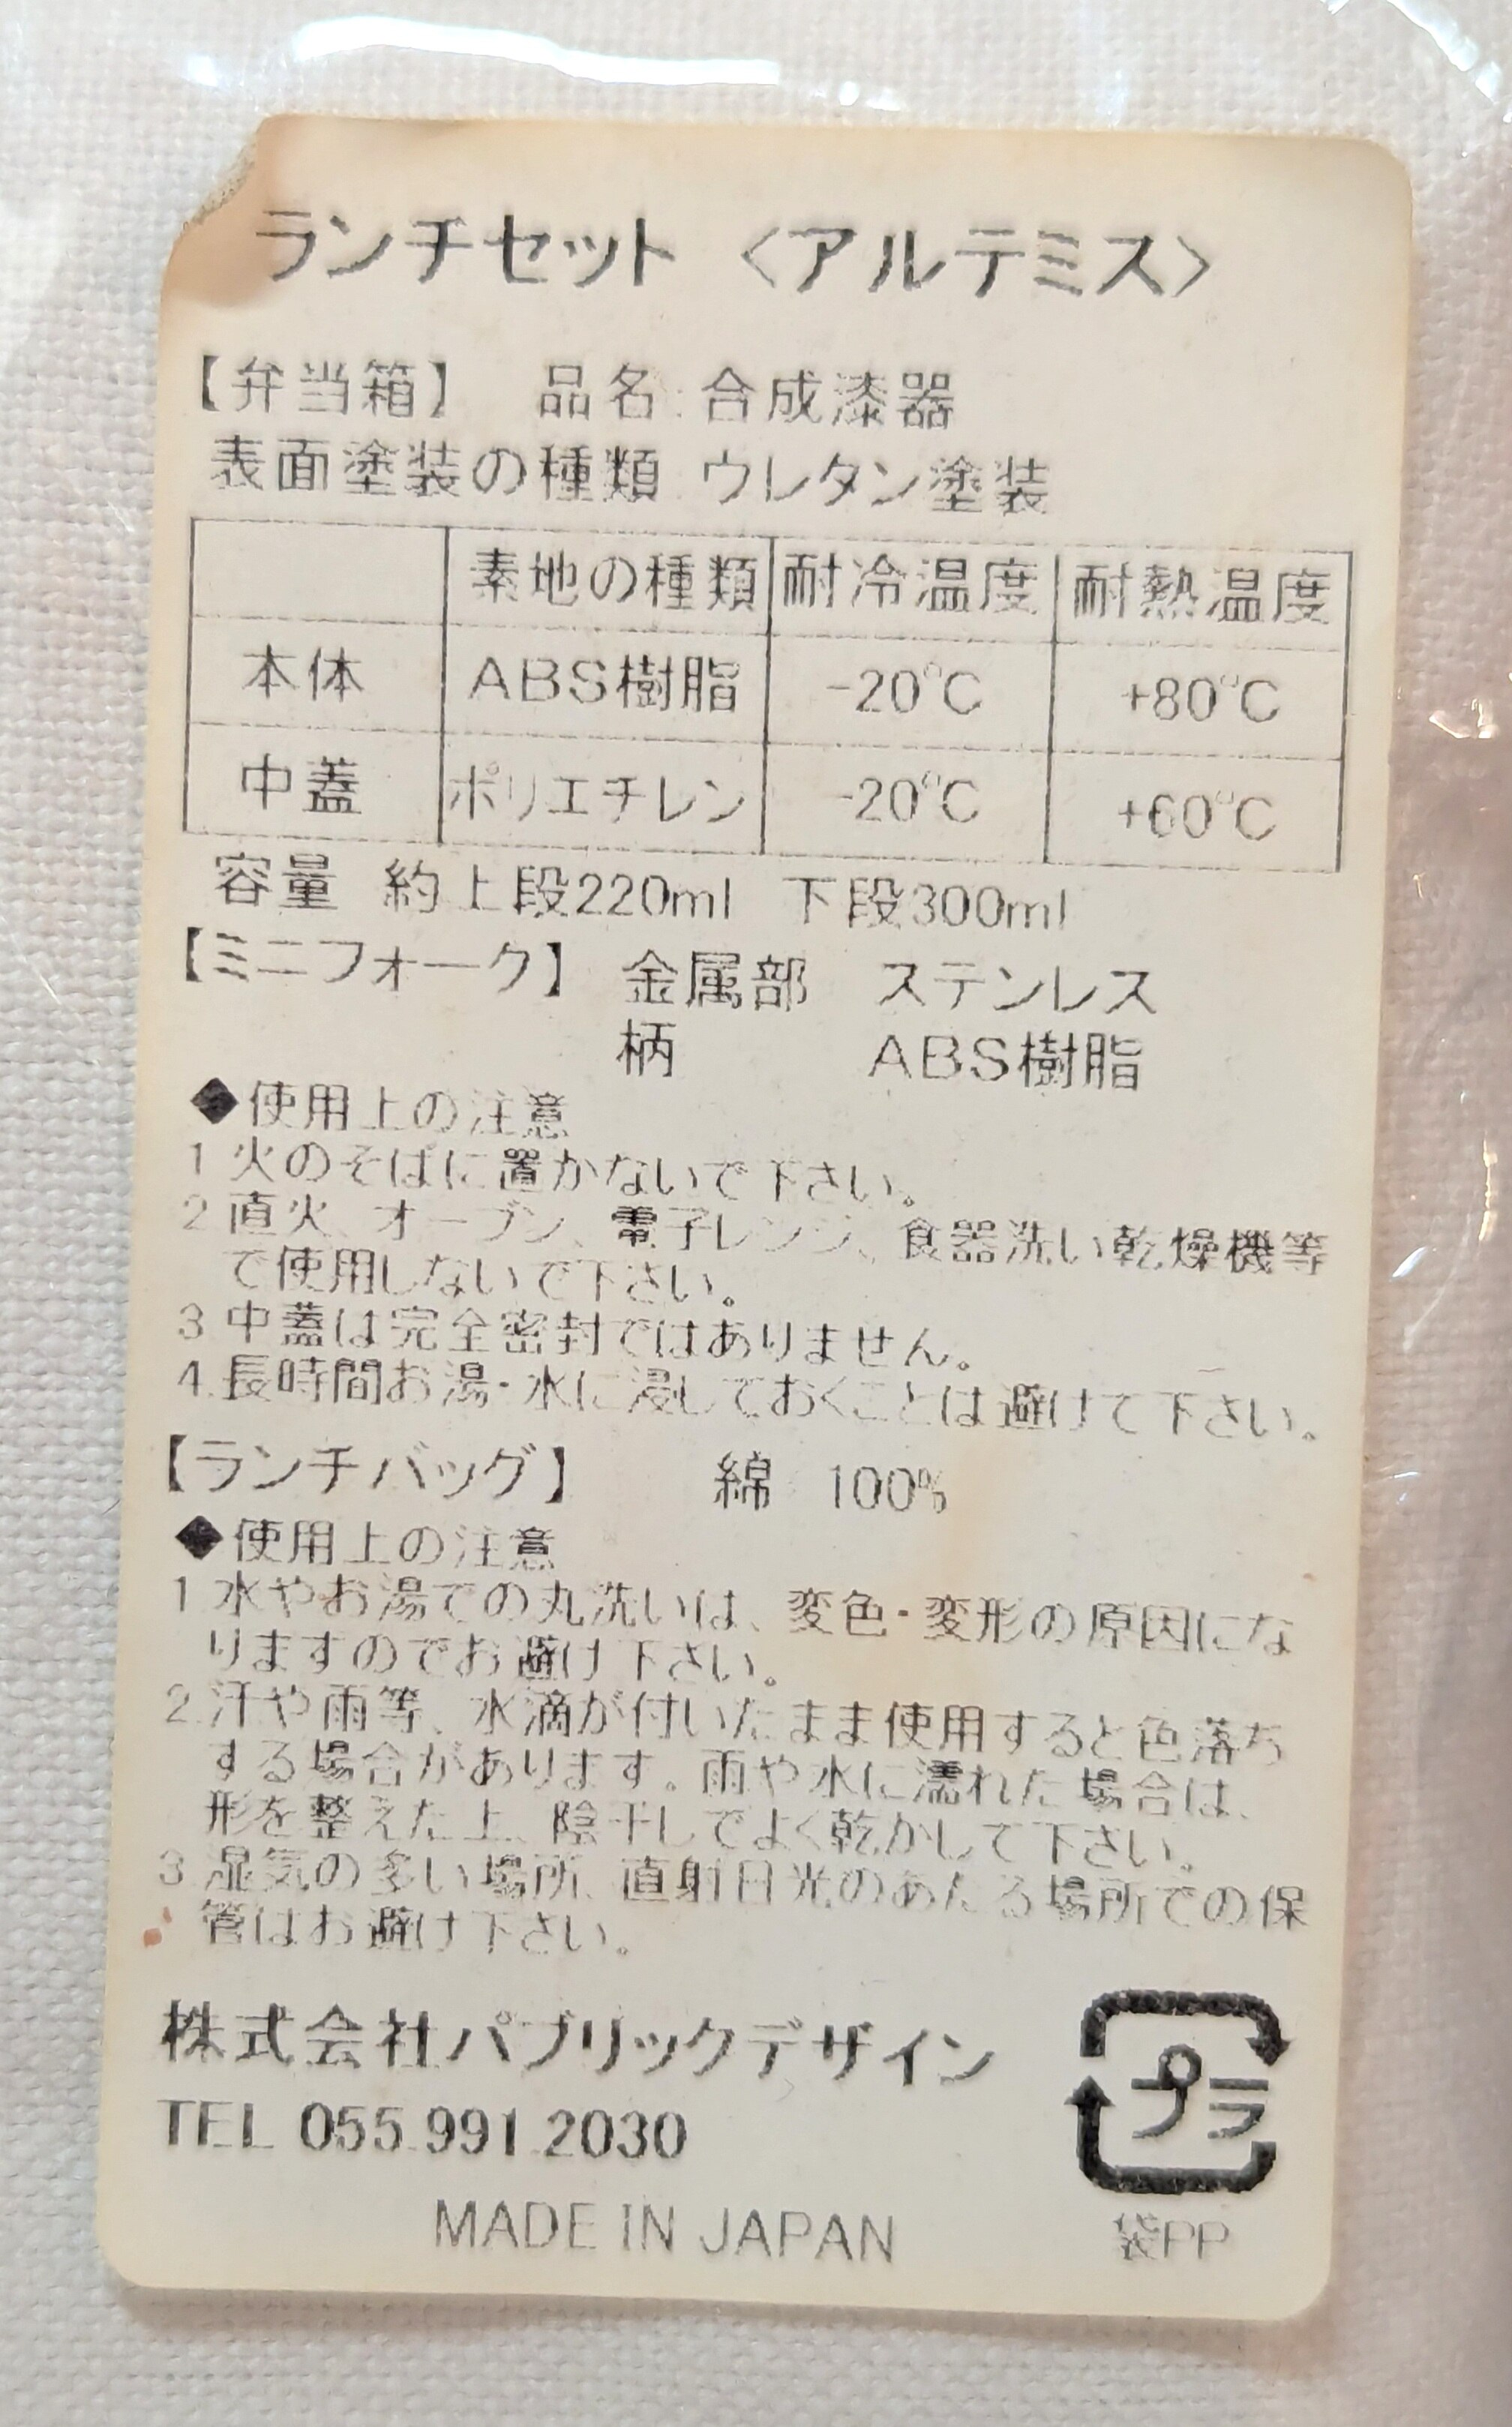 ランチセット 〈アルテミス〉
【弁当箱】 品名 合成漆器
表面塗装の種類 ウレタン塗装
素地の種類 耐冷温度 耐熱温度
本体 ABS樹脂 -20℃ +80℃
中蓋 ポリエチレン -20℃ +60℃
容量 約上段220ml 下段300ml
【ミニフォーク】 金属部 ステンレス
柄 ABS樹脂
◆使用上の注意
1 火のそばに置かないで下さい。
2 直火、オーブン、電子レンジ、食器洗い乾燥機等
で使用しないで下さい。
3 中蓋は完全密封ではありません。
4.長時間お湯・水に浸しておくことは避けて下さい。
【ランチバッグ】 綿 100%
◆使用上の注意
1 水やお湯での丸洗いは、変色・変形の原因にな
りますのでお避け下さい。
2.汗や雨等、水滴が付いたまま使用すると色落ち
する場合があります。雨や水に濡れた場合は、
形を整えた上、陰干しでよく乾かして下さい。
3 湿気の多い場所、直射日光のあたる場所での保
管はお避け下さい。
株式会社パブリックデザイン
TEL 055.991.2030
MADE IN JAPAN
プラ
袋PP